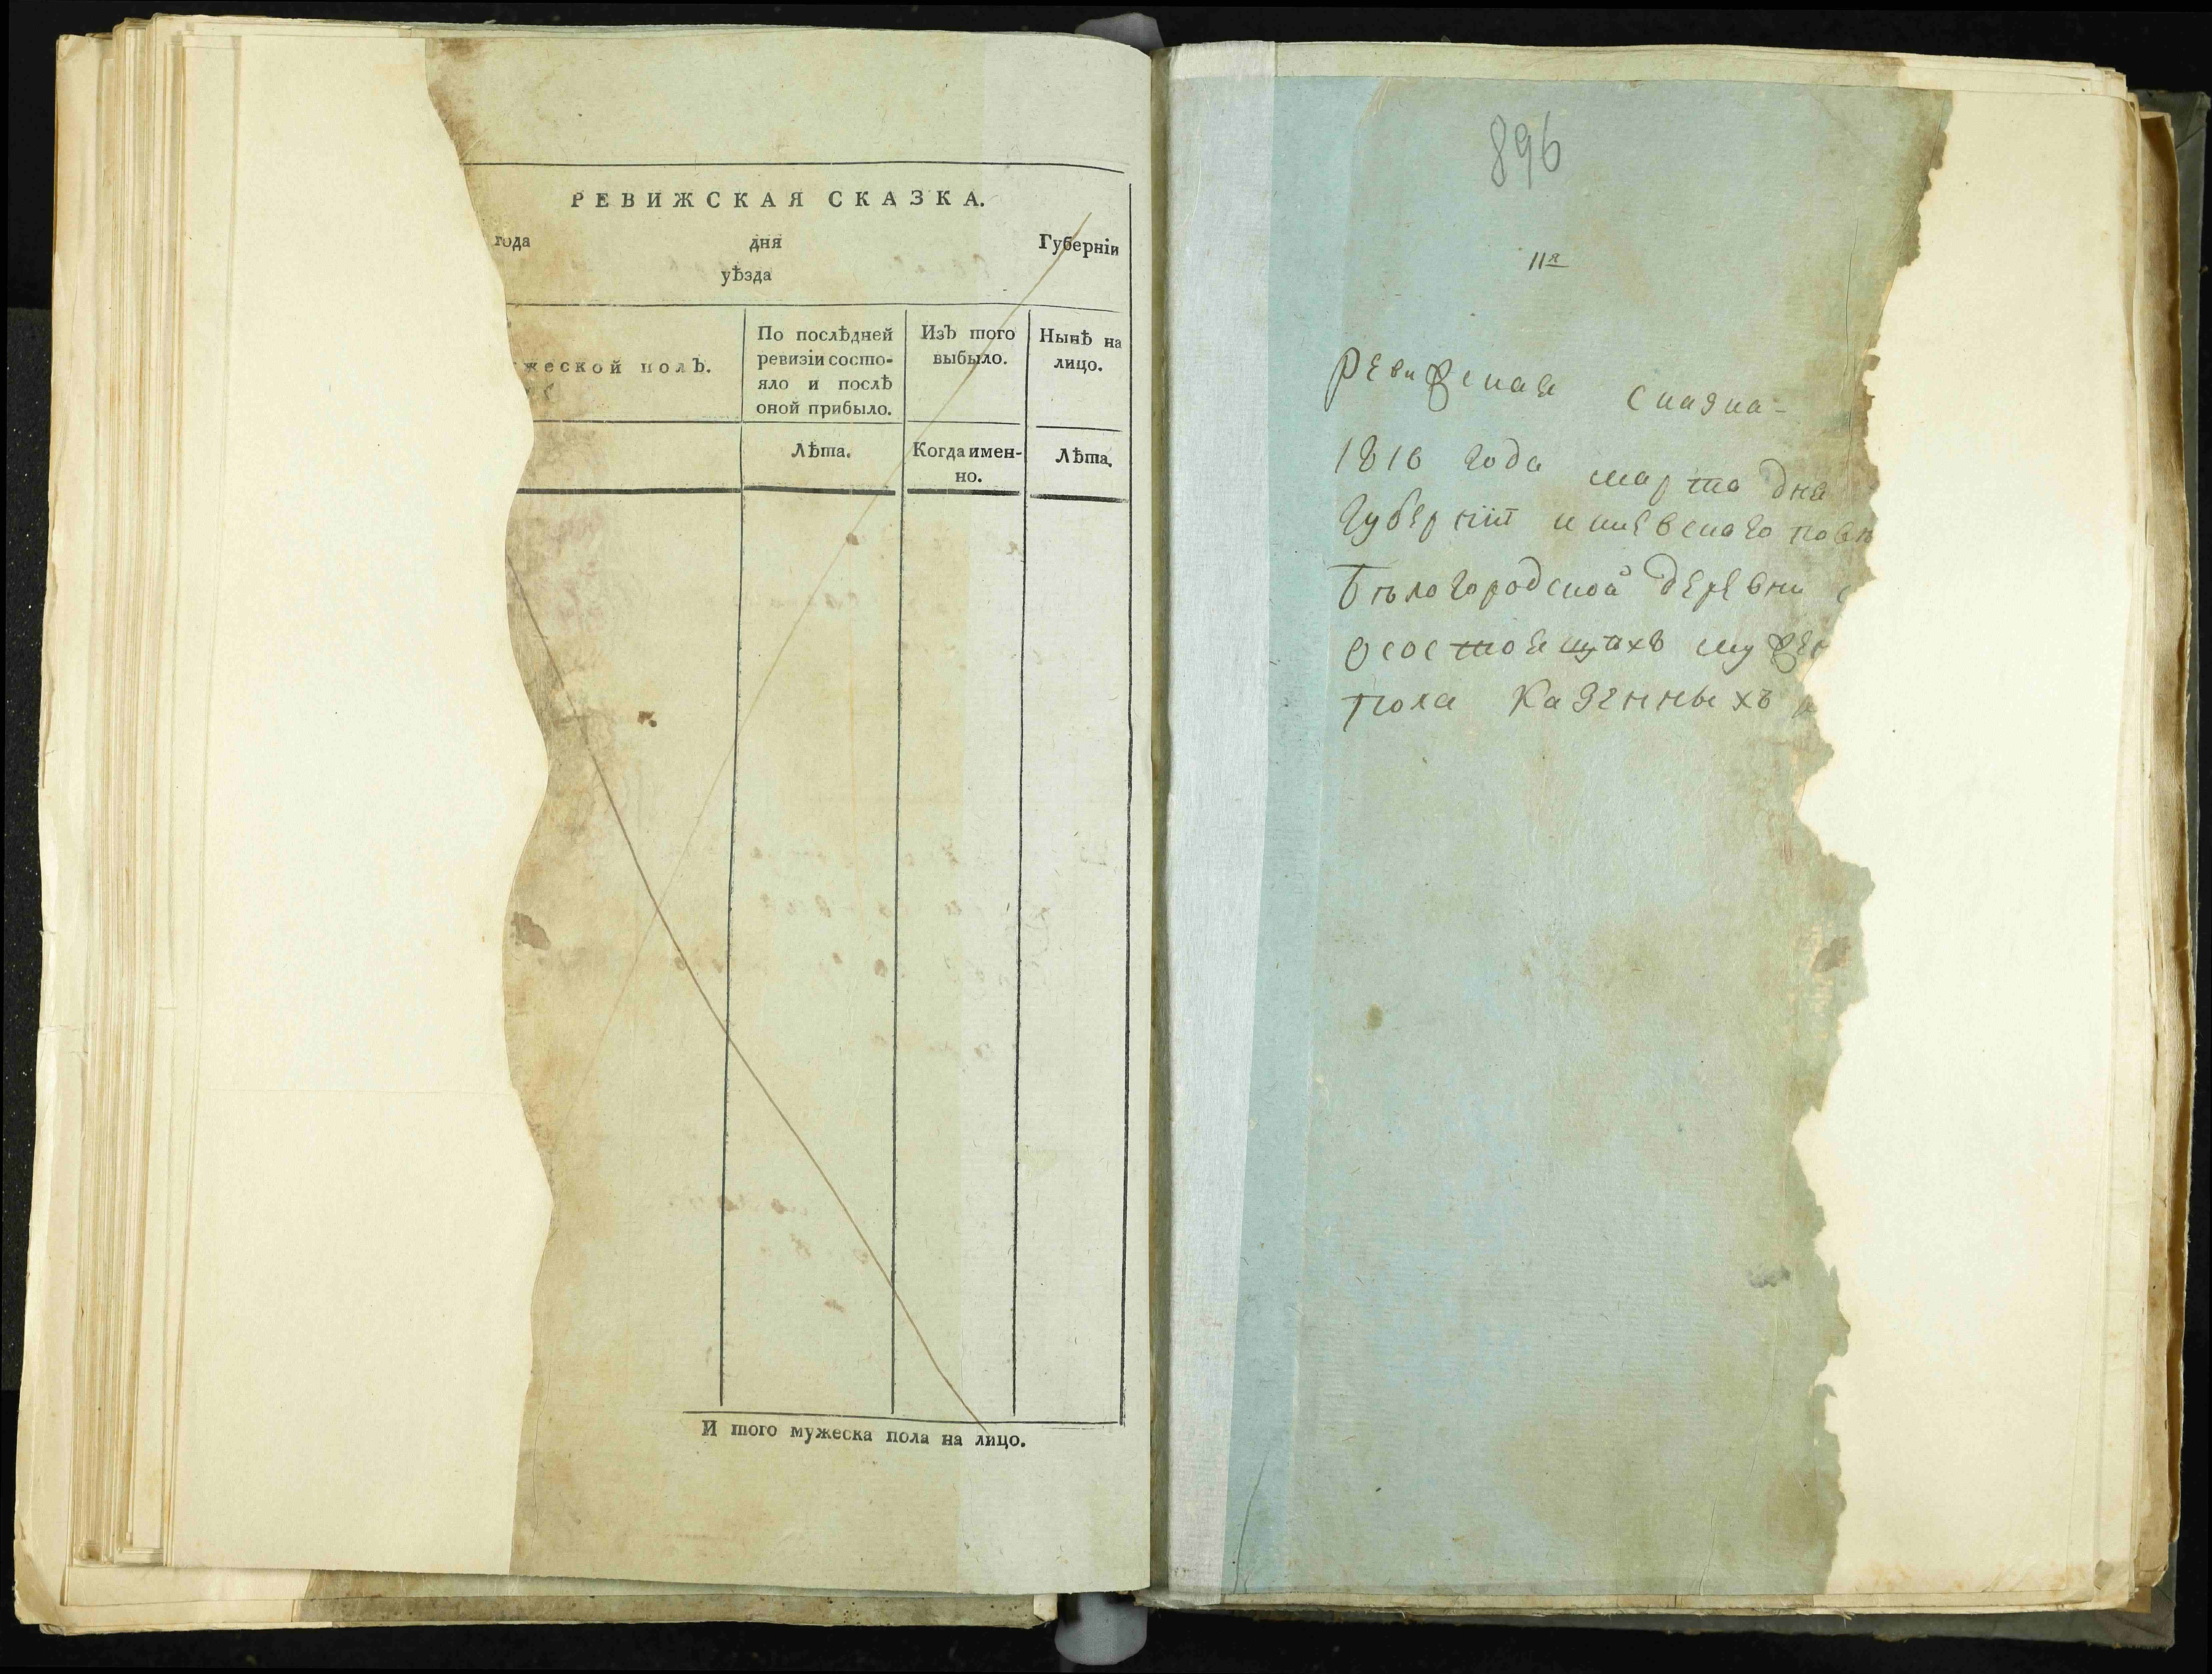 РЕВИЖСКАЯ СКАЗКА.
года дня Губерніи
уѣзда
жеской полъ.
По послѣдней
ревизіи состо-
яло и послѣ
оной прибыло.
Изъ того
выбыло.
Нынѣ на
лицо.
Лѣта.
Когда имен-
но.
Лѣта.
И того мужеска пола на лицо.
896
11я
Ревижская Сказка-
1816 года марта дня
Губерніи кіевского повѣ
Бѣлогородской деревни
Осостоящихъ мужес
пола Казенныхъ